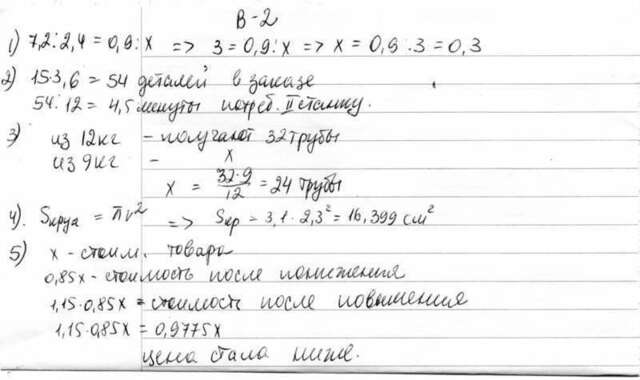 В-2
1) 7,2:2,4 = 0,9:x => 3 = 0,9:x => x = 0,9:3 = 0,3
2) 15·3,6 = 54 деталей в заказе
54:12 = 4,5 минуты потреб. II станку.
3) из 12кг - получают 32 трубы
из 9кг - x
x = 32·9/12 = 24 трубы
4). Sкруга = πr² => Sкр = 3,1·2,3² = 16,399 см²
5) x - стоим. товара
0,85x - стоимость после понижения
1,15·0,85x = стоимость после повышения
1,15·0,85x = 0,9775x
цена стала ниже.